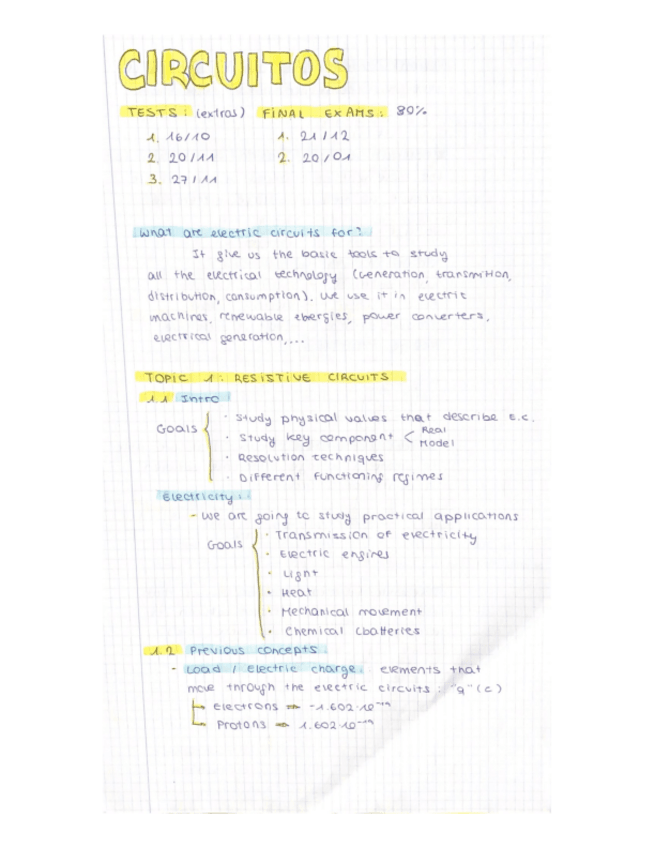 CIRCUITOS
TESTS: (extras) FINAL EXAMS: 80%
1. 16/10 1. 21/12
2. 20/11 2. 20/01
3. 27/11
What are electric circuits for?
It give us the basic tools to study
all the electrical technology (Generation, transmition,
distribution, consumption). We use it in electric
machines, renewable ebergies, power converters,
electrical generation,...
TOPIC 1: RESISTIVE CIRCUITS
1.1 Intro
Goals { · Study physical values that describe e.c.
· Study key component < Real
Model
· Resolution techniques
· Different functioning regimes
Electricity:
- We are going to study practical applications
Goals { · Transmission of electricity
· Electric engines
· Light
· Heat
· Mechanical movement
· Chemical (batteries
1.2 Previous concepts
- Load / electric charge: elements that
move through the electric circuits: "q" (C)
↳ electrons ⇒ -1.602·10⁻¹⁹
↳ Protons ⇒ 1.602·10⁻¹⁹